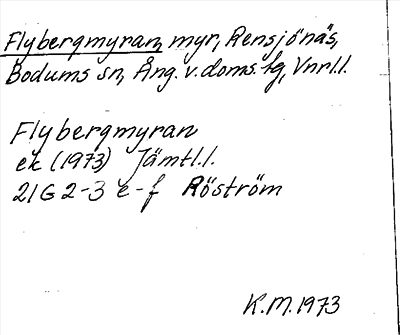 Flybergmyran, myr, Rensjönäs,
Bodums sn, Ång. v. doms. fg, Vnrl.l.
Flybergmyran
ek (1973) Jämtl.l.
21G 2-3 e-f Röström
K.M. 1973